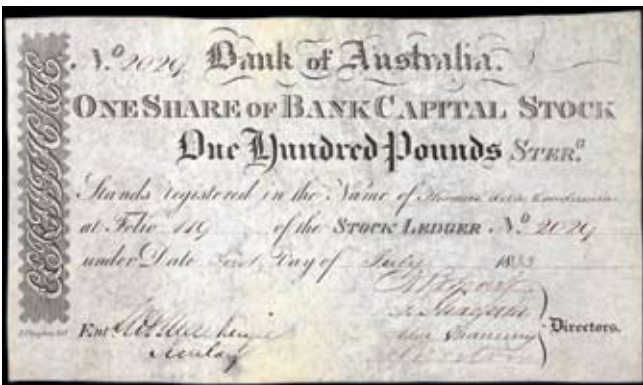 CERTIFICATE
No. 2029 Bank of Australia.
ONE SHARE OF BANK CAPITAL STOCK
One Hundred Pounds STERG.
Stands registered in the Name of
at Folio 119 of the STOCK LEDGER No. 2029
under Date First Day of July 1833
Directors.
Ent
Secretary